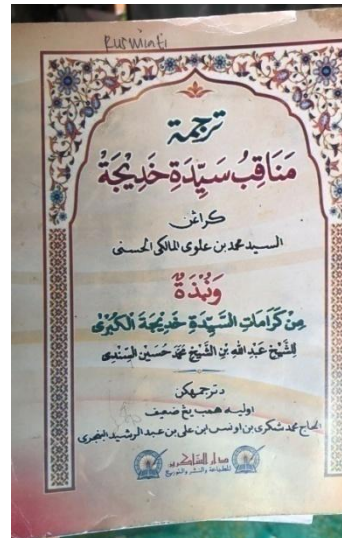 Rusminti
ترجمة
مَنَاقِبُ سَيِّدَةِ خَدِيْجَةْ
كراڠن
السيد محمد بن علوي المالكي الحسني
وَنُبْذَةٌ
مِنْ كَرَامَاتِ السَّيِّدَةِ خَدِيْجَةَ الْكُبْرَى
لِلشَّيْخِ عَبْدِ اللهِ بْنِ الشَّيْخِ مُحَمَّد حُسَيْن السِّنْدِي
دترجمهكن
اوليه همب يڠ ضعيف
الحاج محمد شكري بن اونس ابن علي بن عبد الرشيد البنجري
للطباعة والنشر والتوزيع